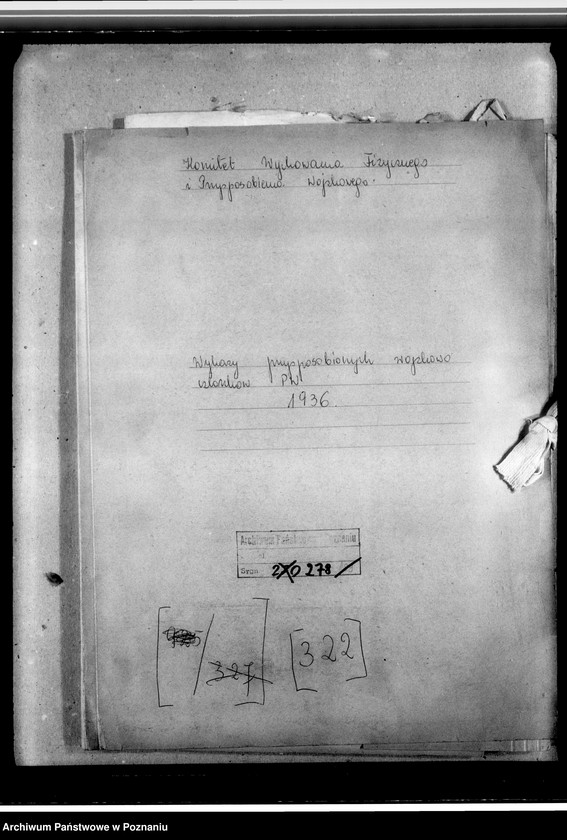 Komitet Wychowania Fizycznego
i Przysposobienia Wojskowego.
Wykazy przysposobionych wojskowo
członków PW
1936.
Archiwum Państwowe Poznaniu
278
327
[322]
Archiwum Państwowe w Poznaniu